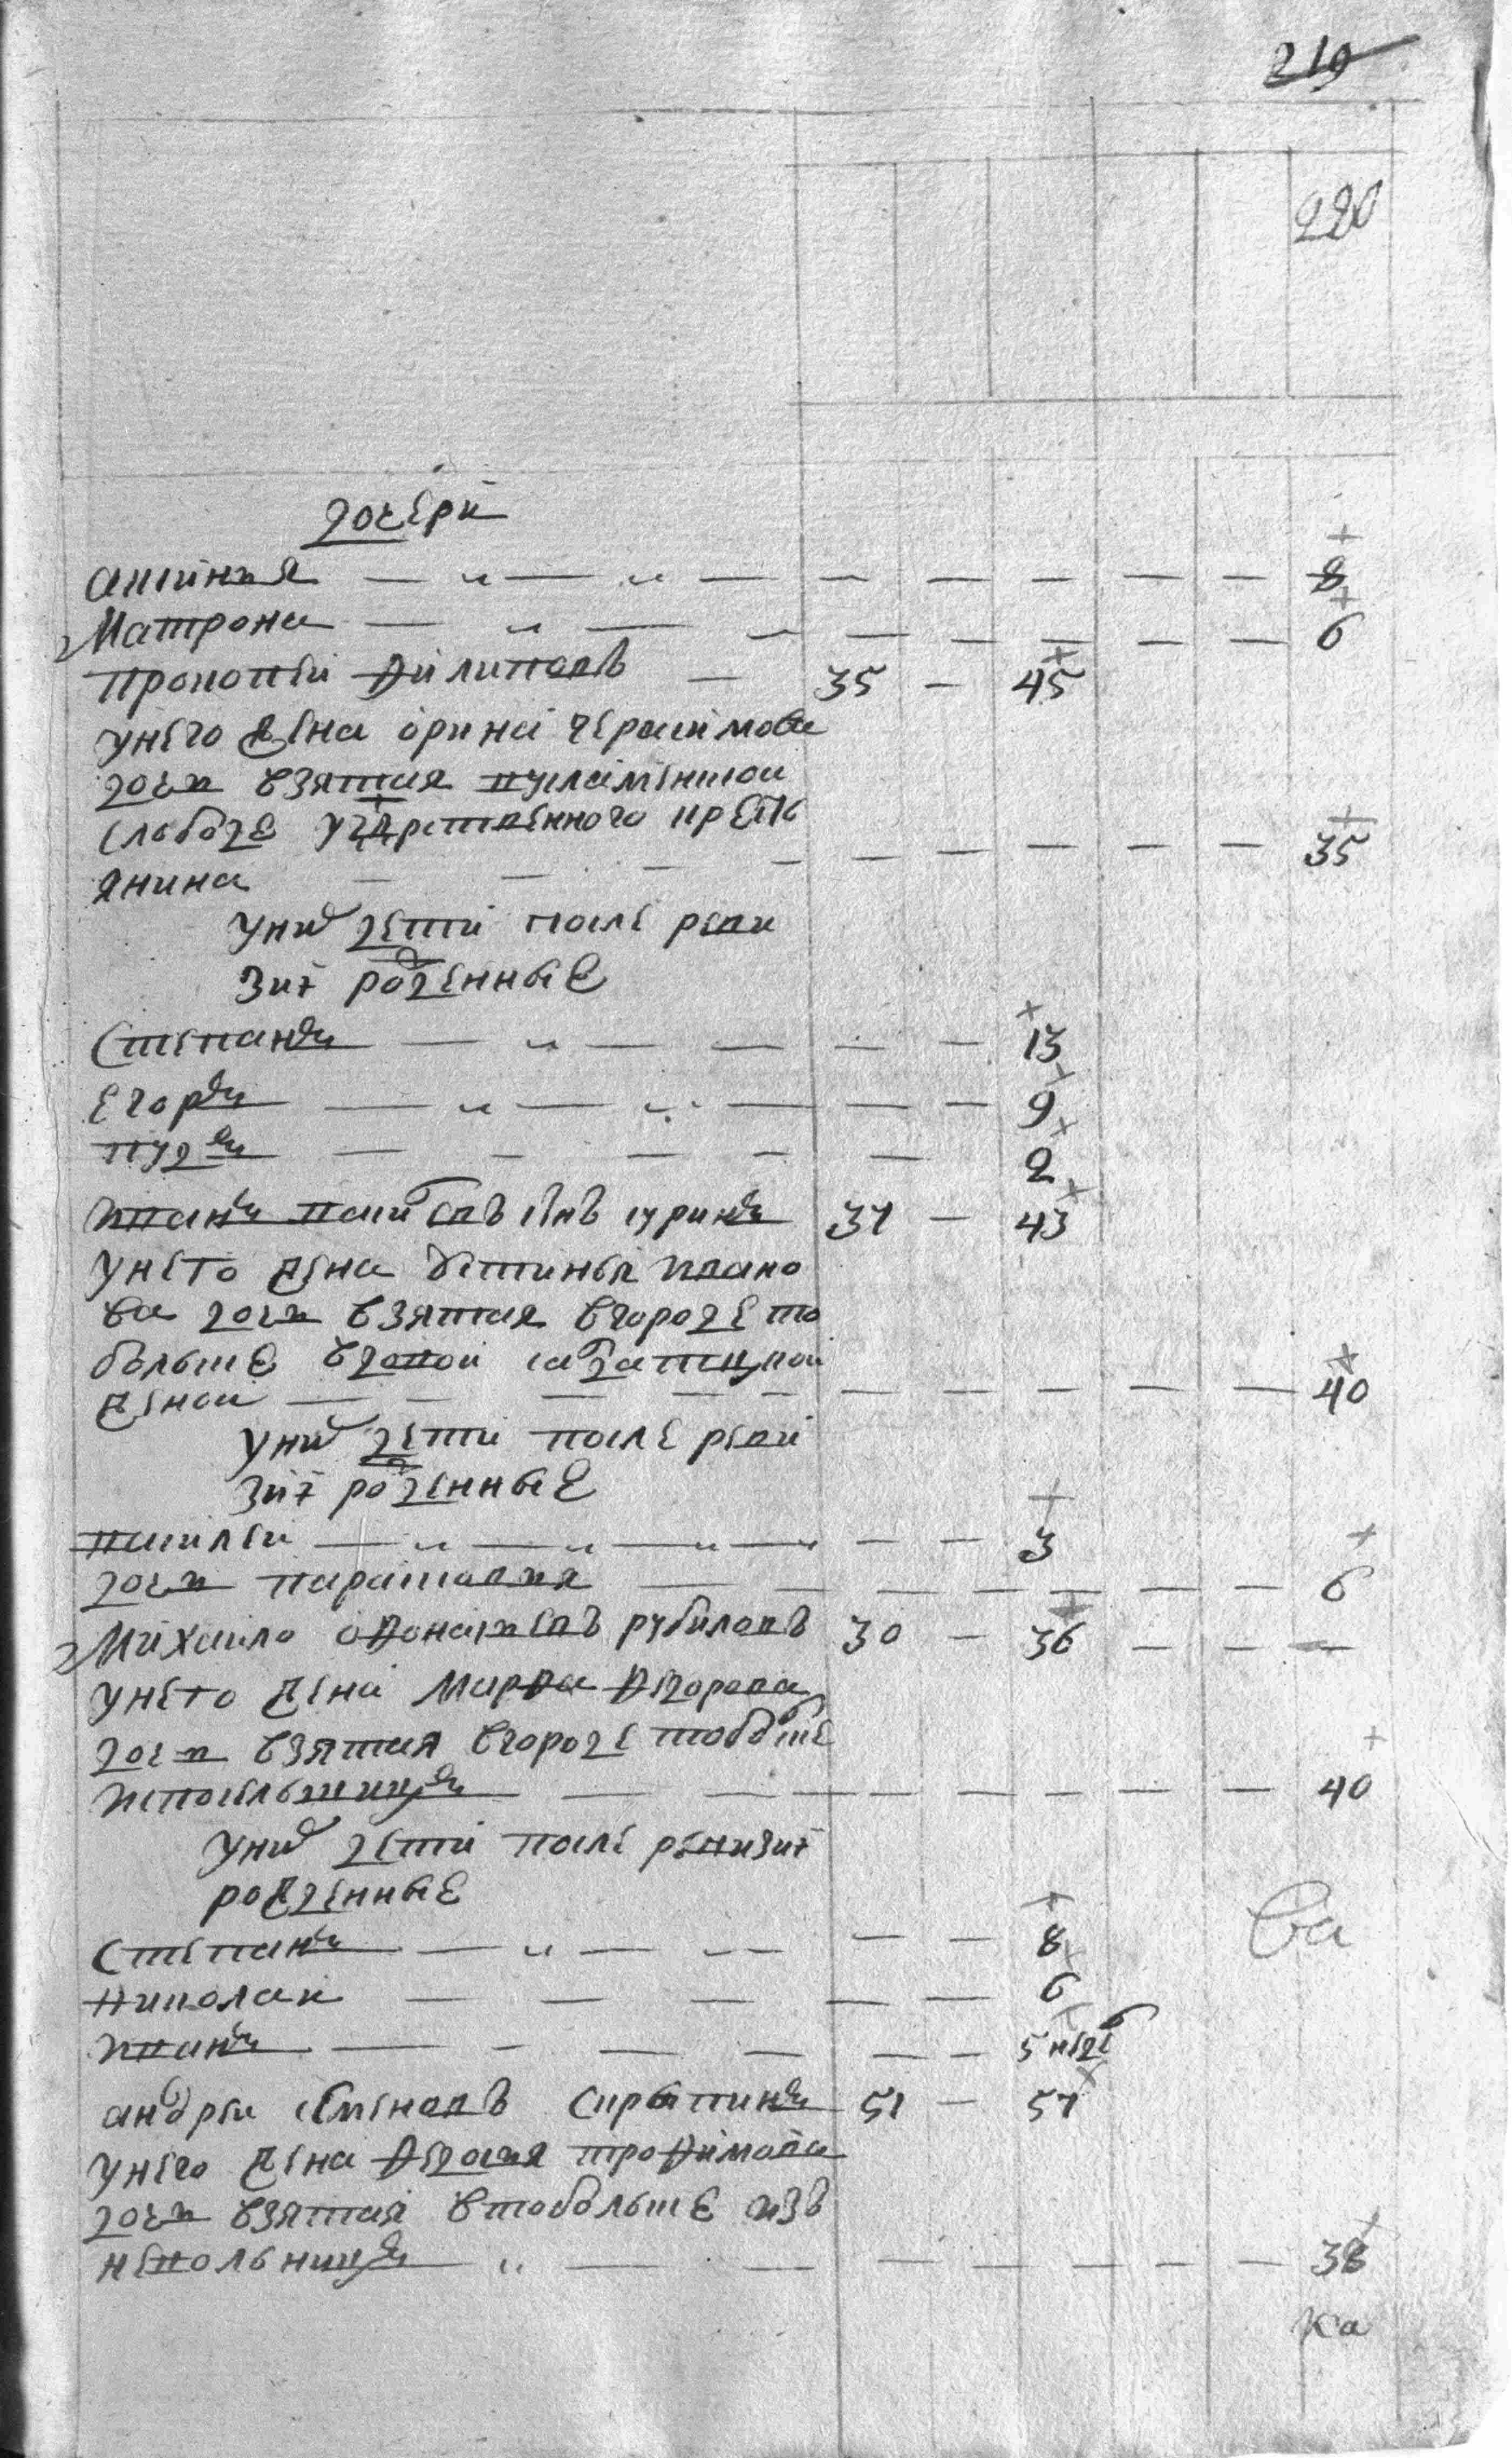 219
220
дочери
аксинья 8
Матрона 6
прокопей Филиповъ 35 45
унего жена орина герасимова
дочь взятая
слободе государственного кресть
янина 35
уних дети после реви
зиї рожденные
Степанъ 13
Егоръ 9
9
Иванъ 37 43
унего жена устинья ивано
ва дочь взятая вгороде то
больске вдовой салдацкой
женой 40
уних дети после реви
зиї рожденные
василей 3
дочь парасковья 6
Михайло афонасьевъ рубилевъ 30 36
унего жена Марфа Федорова
дочь взятая вгороде тобольске
40
уних дети после ревизиї
рожденные
Степанъ 8
Николаи 6
Иванъ 5 недел
андреи семеновъ скрыпинъ 51 57
унего жена Федосья трофимова
дочь взятая втобольске изъ
невольницъ 38
ва
ка